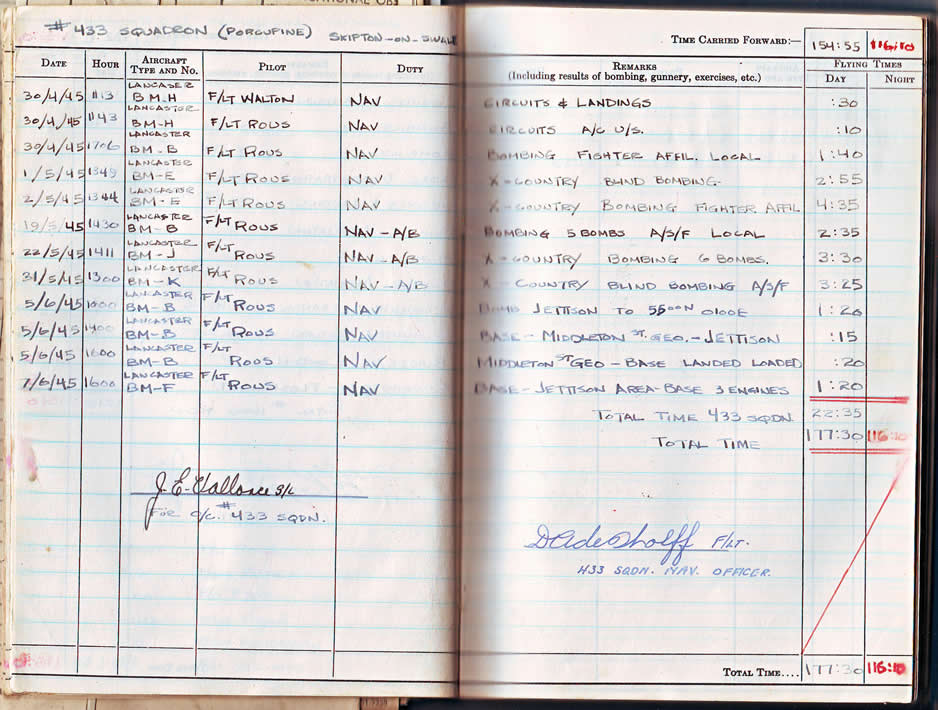 # 433 SQUADRON (PORCUPINE) SKIPTON-ON-SWALE
TIME CARRIED FORWARD:— 154:55 116:10
DATE HOUR AIRCRAFT TYPE AND NO. PILOT DUTY REMARKS (Including results of bombing, gunnery, exercises, etc.) FLYING TIMES DAY NIGHT
30/4/45 1113 LANCASTER BM-H F/LT WALTON NAV CIRCUITS & LANDINGS :30
30/4/45 1143 LANCASTER BM-H F/LT ROUS NAV CIRCUITS A/C U/S. :10
30/4/45 1706 LANCASTER BM-B F/LT ROUS NAV BOMBING FIGHTER AFFIL. LOCAL 1:40
1/5/45 1349 LANCASTER BM-E F/LT ROUS NAV X-COUNTRY BLIND BOMBING. 2:55
2/5/45 1344 LANCASTER BM-E F/LT ROUS NAV X-COUNTRY BOMBING FIGHTER AFFIL 4:35
19/5/45 1430 LANCASTER BM-B F/LT ROUS NAV-A/B BOMBING 5 BOMBS A/S/F LOCAL 2:35
22/5/45 1411 LANCASTER BM-J F/LT ROUS NAV-A/B X-COUNTRY BOMBING 6 BOMBS. 3:30
31/5/45 1300 LANCASTER BM-K F/LT ROUS NAV-A/B X-COUNTRY BLIND BOMBING A/S/F 3:25
5/6/45 1000 LANCASTER BM-B F/LT ROUS NAV BOMB JETTISON TO 5500N 0100E 1:20
5/6/45 1400 LANCASTER BM-B F/LT ROUS NAV BASE-MIDDLETON ST. GEO.-JETTISON :15
5/6/45 1600 LANCASTER BM-B F/LT ROUS NAV MIDDLETON ST GEO-BASE LANDED LOADED :20
7/6/45 1600 LANCASTER BM-F F/LT ROUS NAV BASE-JETTISON AREA-BASE 3 ENGINES 1:20
TOTAL TIME 433 SQDN. 22:35
TOTAL TIME 177:30 116:10
J.E. S/L
FOR O/C. # 433 SQDN.
F/LT.
433 SQDN. NAV. OFFICER.
TOTAL TIME.... 177:30 116:10